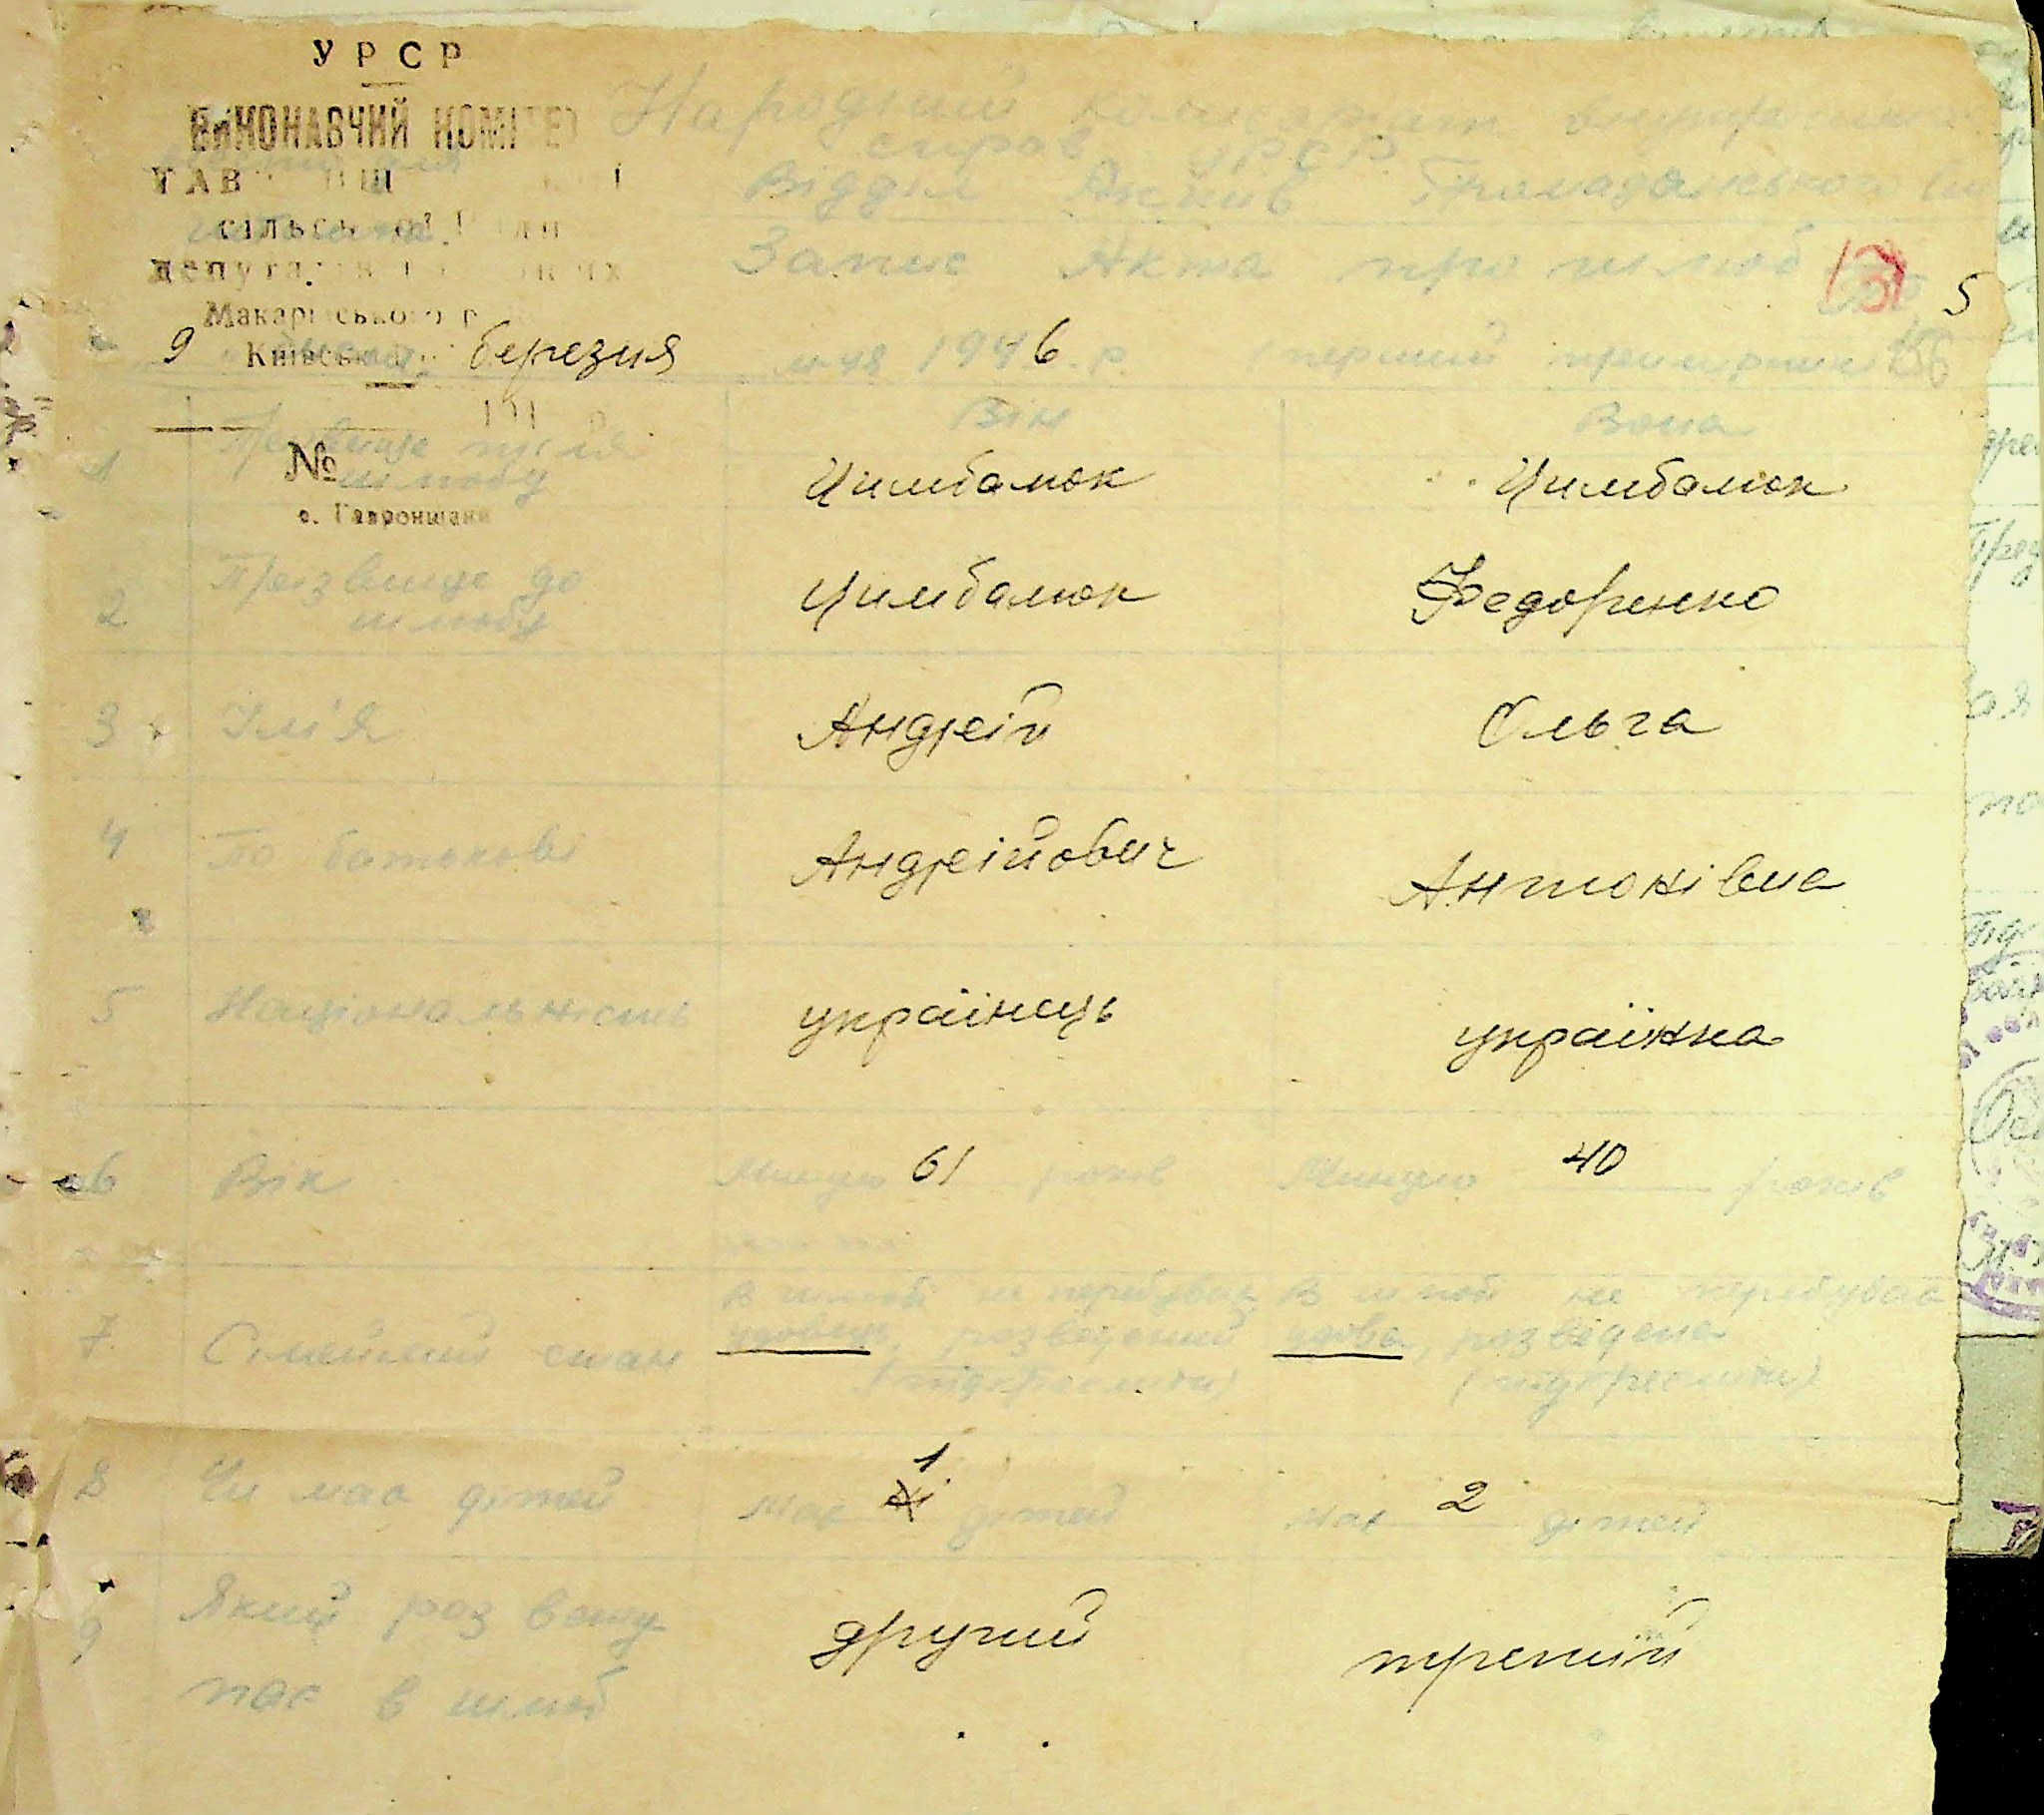 УРСР
ВИКОНАВЧИЙ КОМІТЕТ
сільської Ради
депутатів
Макарівського
Київської
Народний комісаріат внутрішніх
справ УРСР
Відділ Актів Громадянського
Запис Акта про шлюб
5
9 березня м-ця 1946 р. перший примірник
Він Вона
1 Прізвище після шлюбу Цимбалюк Цимбалюк
№
с. Гавронщина
2 Прізвище до шлюбу Цимбалюк Федоренко
3 Ім'я Андрій Ольга
4 По батькові Андрійович Антонівна
5 Національність українець українка
6 Вік Минуло 61 років Минуло 40 років
7 Сімейний стан В шлюбі не перебував, удовець, розведений (підкреслити) В шлюбі не перебувала удова, розведена (підкреслити)
8 Чи має дітей Має 1 дітей Має 2 дітей
9 Який раз вступ
пає в шлюб другий третій